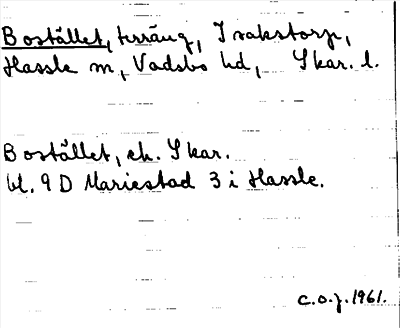 Bostället, terräng, Isakstorp,
Hassle sn, Vadsbo hd, Skar. l.
Bostället, ek. Skar.
bl. 9 D Mariestad 3 i Hassle.
C.O.J. 1961.